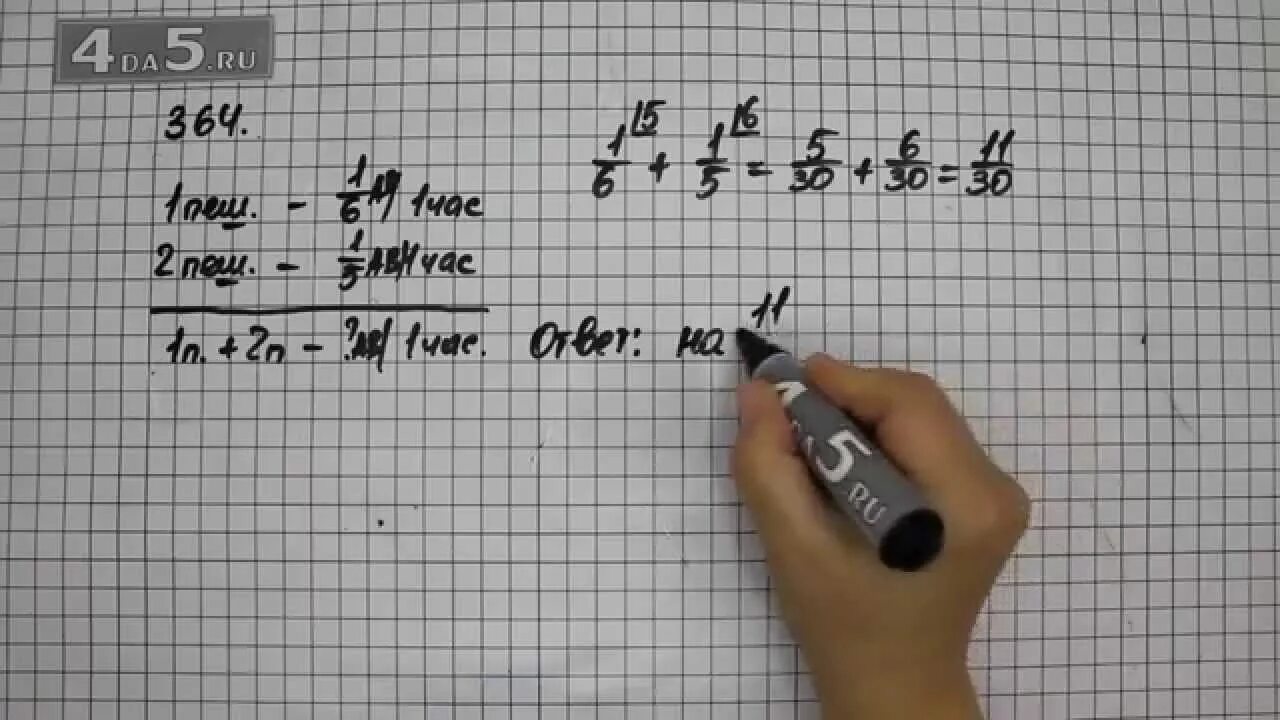 4DA5.RU
364.
1 пеш. - 1/6 АВ/ 1 час
2 пеш. - 1/5 АВ/1 час
1п. + 2п - ? АВ/ 1 час.
1/6 |5 + 1/5 |6 = 5/30 + 6/30 = 11/30
Ответ: на 11
5.RU